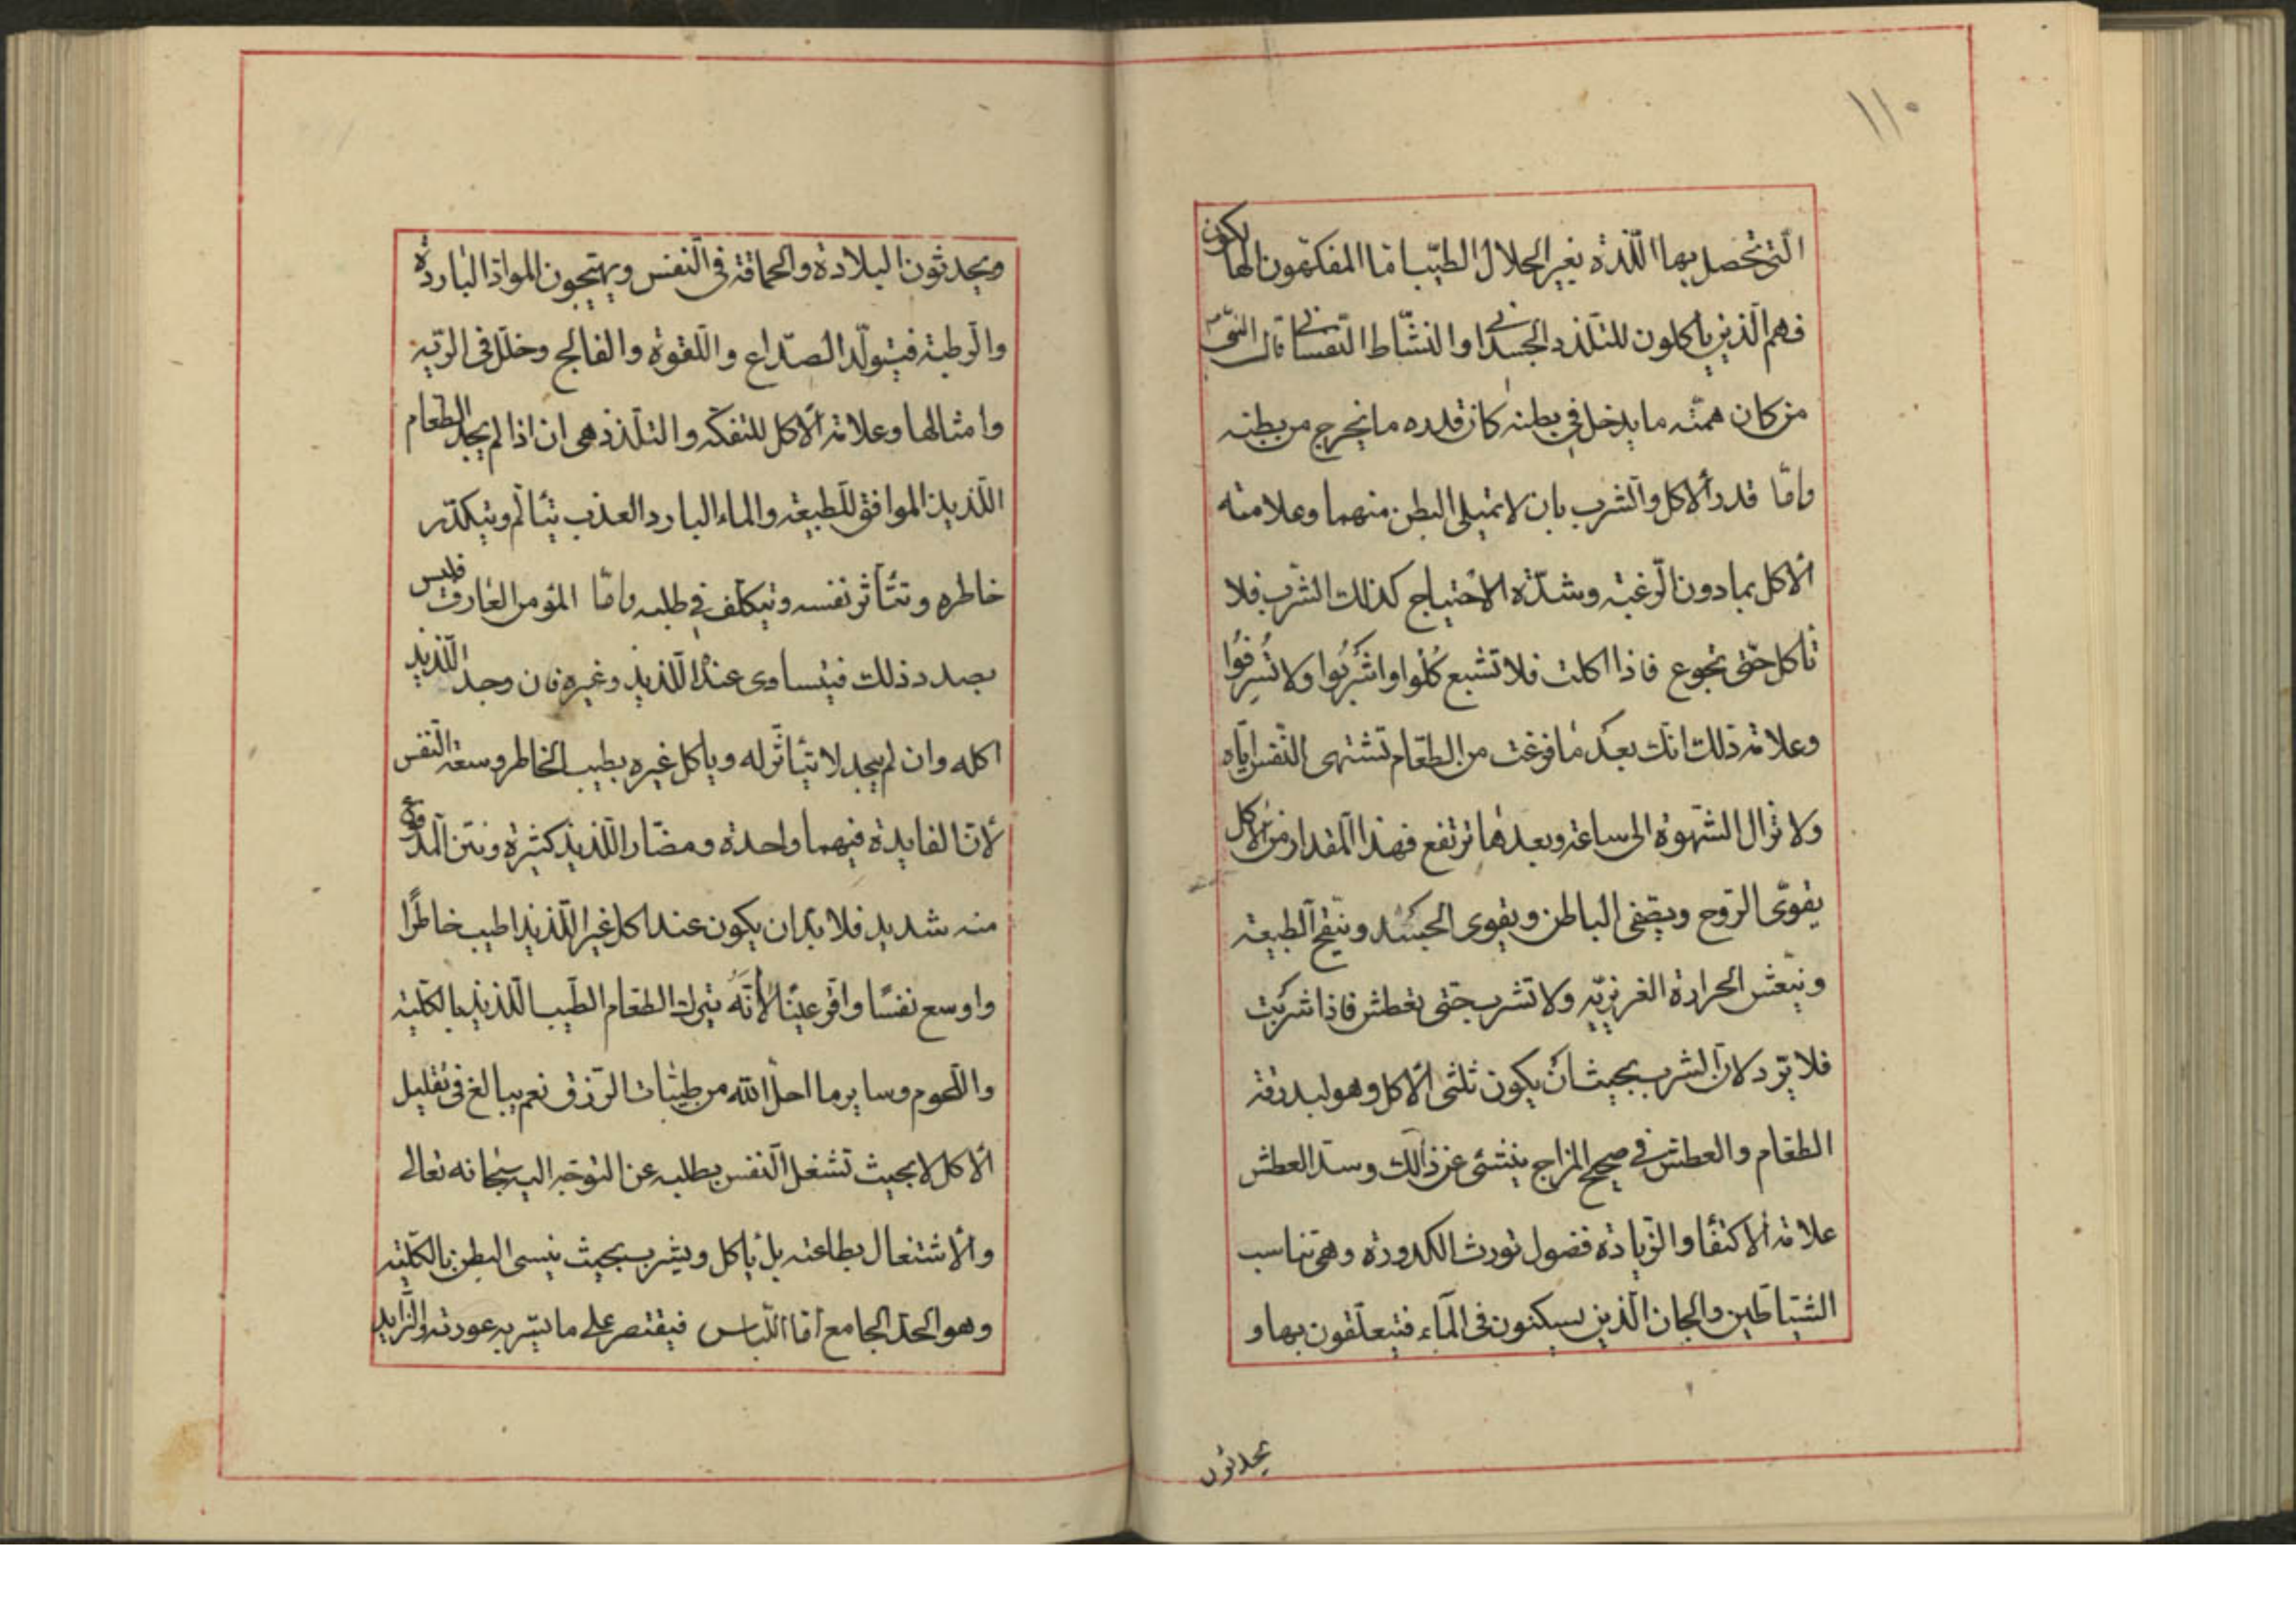 ١١٠
الّتي تحصل بها اللّذة بغير الحلال الطيّب امّا المفكّهون الهالكون
فهم الّذين يأكلون للتّلذّذ الجسدانی او النّشاط النّفسانی قال النّبی ص
من كان همّته ما يدخل في بطنه كان قدره ما يخرج من بطنه
وامّا قدر الاكل والشرب بان لا تمتلی البطن منهما وعلامته
الاكل بما دون الرّغبة وشدّة الاحتياج كذلك الشرب فلا
تاكل حتّی تجوع فاذا اكلت فلا تشبع كُلُوا واشرَبُوا ولا تُسرِفُوا
وعلامة ذلك انّك بعد ما فرغت من الطّعام تشتهی النّفس ايّاه
ولا تزال الشّهوة الی ساعة وبعدها ترتفع فهذا المقدار من الاكل
يقوّی الرّوح ويصفی الباطن ويقوی الجسد وينقح الطبيعة
وينعش الحرارة الغريزيّه ولا تشرب حتی تعطش فاذا شربت
فلا تزد لانّ الشرب بحيث ان يكون ثلثی الاكل وهو لبدرقة
الطعام والعطش في صحيح المزاج ينشئ عن ذالك وسدّ العطش
علامة الاكتفا والزّيادة فضول تورث الكدورة وهی تناسب
الشّياطين والجان الّذين يسكنون فی المآء فيتعلّقون بها و
يحدثون
ويحدثون البلادة والحماقة فی النّفس ويهيّجون الموادّ الباردة
والرّطبة فيتولّد الصّداع واللّقوة والفالج وخلل فی الرّیه
وامثالها وعلامة الاكل للتفكّه والتلذّذ هی ان اذا لم يجد الطعام
اللّذيذ الموافق للطبيعه والماء البارد العذب يتألّم ويتكدّر
خاطره وتتأثر نفسه ويتكلّف في طلبه وامّا المؤمن العارف فليس
بصدد ذلك فيتساوی عنده اللّذيذ وغيره فان وجد اللّذيذ
اكله وان لم يجد لا يتأثّر له وياكل غيره بطيب الخاطر وسعة النّفس
لانّ الفايدة فيهما واحدة ومضار اللّذيذ كثيرة ونتن المدفوع
منه شديد فلا بدّ ان يكون عند اكل غير اللّذيذ اطيب خاطرًا
واوسع نفسًا واقرّ عينًا لا أنّه يترك الطعام الطّيب اللّذيذ بالكلّيّة
واللّحوم وساير ما احلّ الله من طيّبات الرّزق نعم يبالغ فی تقليل
الاكل لا بحيث تشغل النّفس بطلبه عن التوجّه اليه سبحانه تعالی
والاشتغال بطاعته بل يأكل ويشرب بحيث ينسی البطن بالكلّيّه
وهو الحدّ الجامع امّا اللّباس فيقتصر علی ما يستر به عورته والزّايد